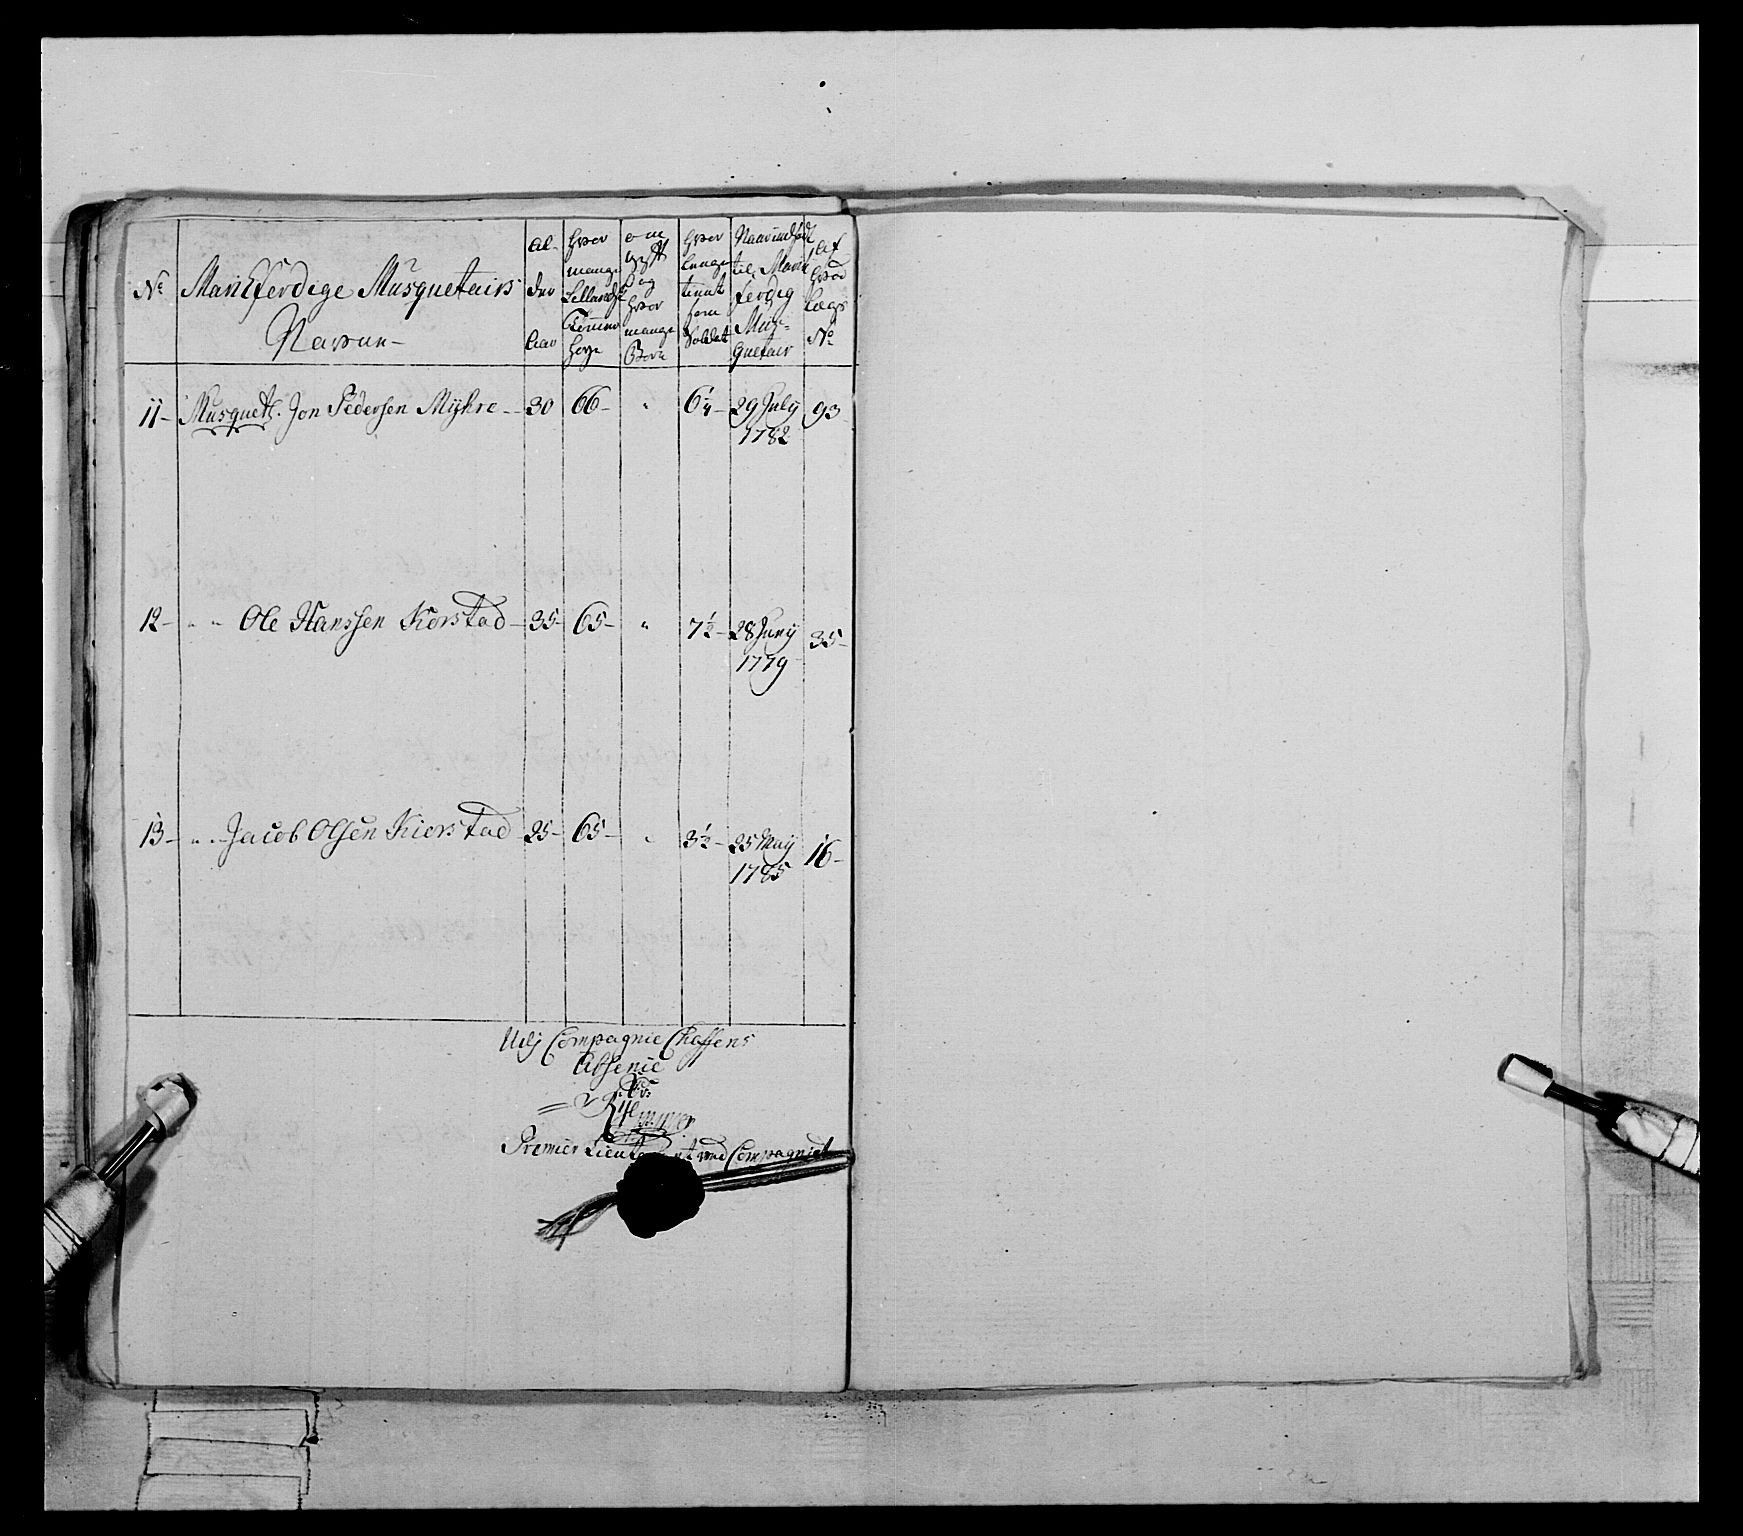 No
Mankferdige Musquetairs
Navne -
Al-
der
Aar
hvor
mange
Tommer
høye
om
gift
og
hvor
mange
Børn
hvor
længe
tient
som
Soldat
Naar indsadt
til Mand
ferdig
Mus-
quetair
Af
hvad
Lægs
No
11 - Musquett. Jon Pedersen Myhre - 30 66 - " 6 1/4 - 29 July 93
1782
12 - " " Ole Hanssen Korstad - 35 - 65 - " 7 1/2 - 28 Juny 35 -
1779
13 - " " Jacob Olsen Kierstad 25 - 65 - " 3 1/2 - 25 May 16 -
1785
Udj Compagnie Cheffens
Absenie
Premier Lieutenant ved Compagniet